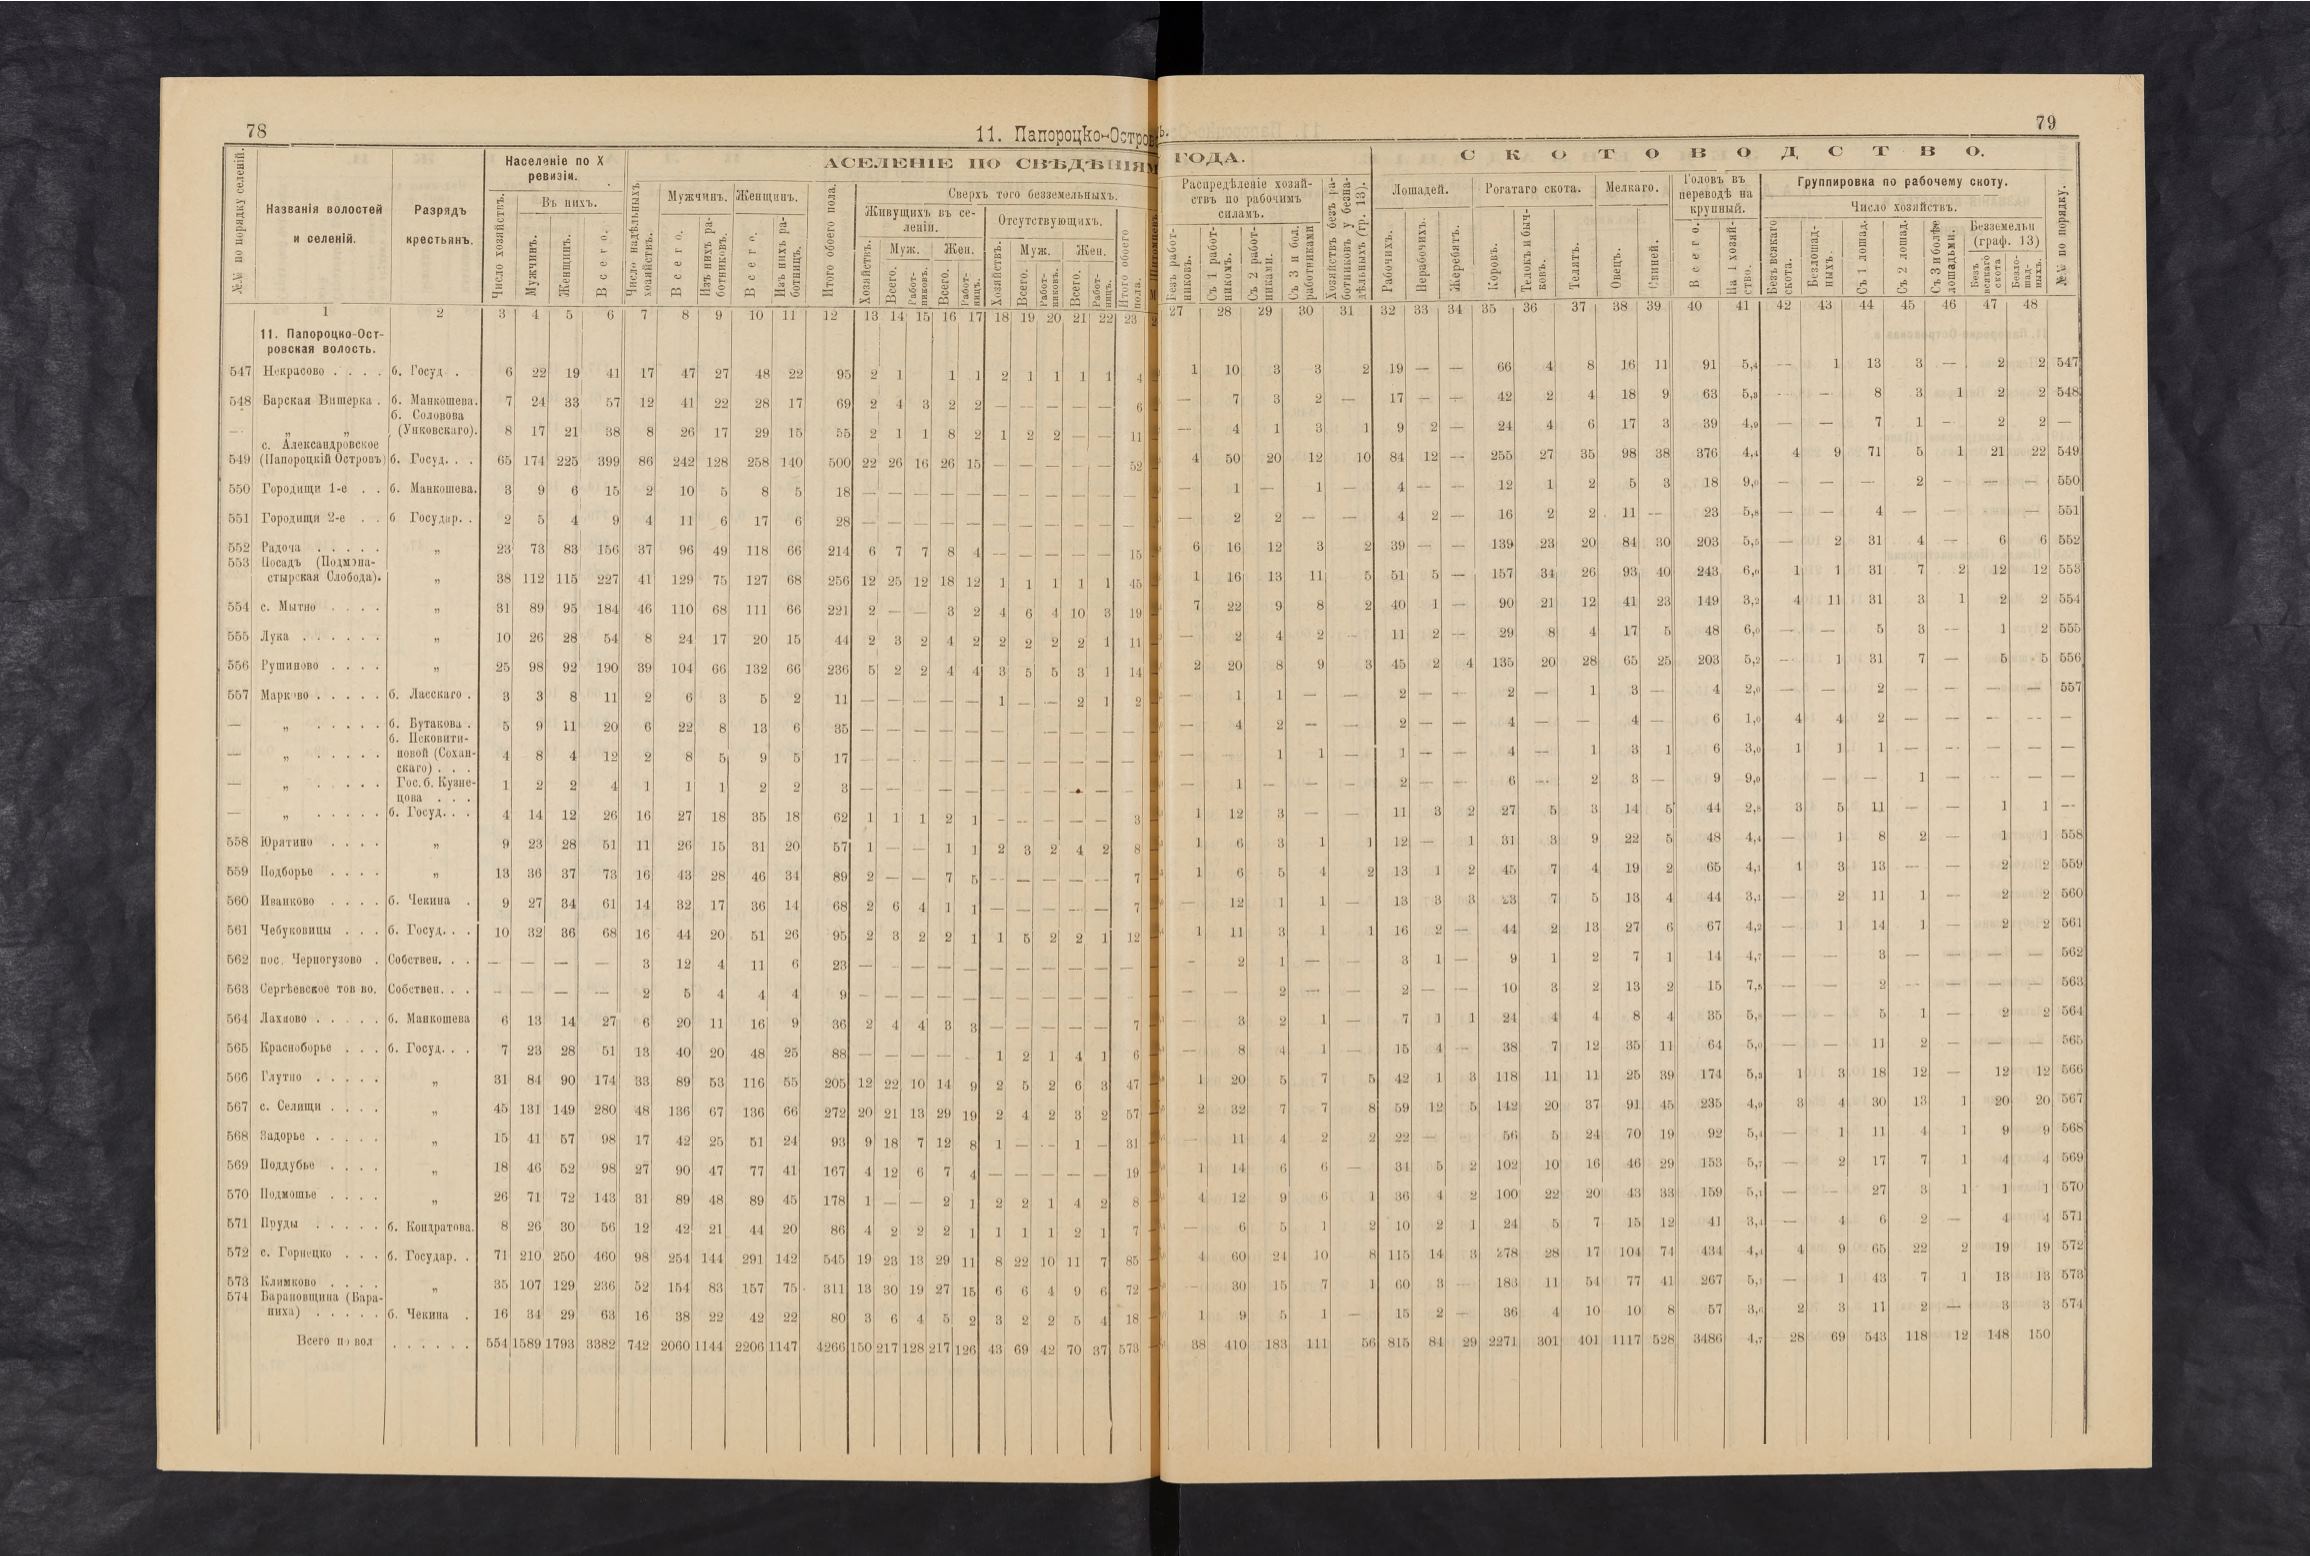 78
11. Папороцко-Остров
ь.
79
№№ по порядку селеній.
Названія волостей и селеній.
Разрядъ крестьянъ.
Населеніе по X ревизіи.
Число хозяйствъ.
Въ нихъ.
Мужчинъ.
Женщинъ.
Всего.
АСЕЛЕНІЕ ПО СВѢДѢНІЯМ
Число надѣльныхъ хозяйствъ.
Мужчинъ.
Женщинъ.
Всего.
Изъ нихъ работниковъ.
Всего.
Изъ нихъ работницъ.
Итого обоего пола.
Сверхъ того безземельныхъ.
Живущихъ въ селеніи.
Отсутствующихъ.
Хозяйствъ.
Муж.
Жен.
Всего.
Работниковъ.
Всего.
Работницъ.
Хозяйствъ.
Муж.
Жен.
Всего.
Работниковъ.
Всего.
Работницъ.
Итого обоего пола.
ГОДА.
Распредѣленіе хозяйствъ по рабочимъ силамъ.
Безъ работниковъ.
Съ 1 работникомъ.
Съ 2 работниками.
Съ 3 и бол. работниками
Хозяйствъ безъ работниковъ у безнадѣльныхъ (гр. 13).
СКОТОВОДСТВО.
Лошадей.
Рогатаго скота.
Мелкаго.
Головъ въ переводѣ на крупный.
Рабочихъ.
Нерабочихъ.
Жеребятъ.
Коровъ.
Телокъ и бычковъ.
Телятъ.
Овецъ.
Свиней.
Всего.
На 1 хозяйство.
Группировка по рабочему скоту.
Число хозяйствъ.
Безъ всякаго скота.
Безлошадныхъ.
Съ 1 лошад.
Съ 2 лошад.
Съ 3 и болѣе лошадьми.
Безземельн (граф. 13)
Безъ всякаго скота
Безлошадныхъ.
№№ по порядку.
1 2 3 4 5 6 7 8 9 10 11 12 13 14 15 16 17 18 19 20 21 22 23 27 28 29 30 31 32 33 34 35 36 37 38 39 40 41 42 43 44 45 46 47 48
11. Папороцко-Островская волость.
547 Некрасово . . . . б. Госуд . 6 22 19 41 17 47 27 48 22 95 2 1 1 1 2 1 1 1 1 4 1 10 3 3 2 19 — — 66 4 8 16 11 91 5,4 — 1 13 3 — 2 2 547
548 Барская Вишерка . б. Манкошева. 7 24 33 57 12 41 22 28 17 69 2 4 3 2 2 — — — — — 6 — 7 3 2 — 17 — — 42 2 4 18 9 63 5,3 — — 8 3 1 2 2 548
— „ „ б. Соловова (Унковскаго). 8 17 21 38 8 26 17 29 15 55 2 1 1 8 2 1 2 2 — — 11 — 4 1 3 1 9 2 — 24 4 6 17 3 39 4,9 — — 7 1 — 2 2 —
549 с. Александровское (Папороцкій Островъ) б. Госуд. . . 65 174 225 399 86 242 128 258 140 500 22 26 16 26 15 — — — — — 52 4 50 20 12 10 84 12 — 255 27 35 98 38 376 4,4 4 9 71 5 1 21 22 549
550 Городищи 1-е . . б. Манкошева. 3 9 6 15 2 10 5 8 5 18 — — — — — — — — — — — — 1 — 1 — 4 — — 12 1 2 5 3 18 9,0 — — — 2 — — — 550
551 Городищи 2-е . . б Государ. . 2 5 4 9 4 11 6 17 6 28 — — — — — — — — — — — — 2 2 — — 4 2 — 16 2 2 11 — 23 5,8 — — 4 — — — — 551
552 Радоча . . . . . „ 23 73 83 156 37 96 49 118 66 214 6 7 7 8 4 — — — — — 15 6 16 12 3 2 39 — — 139 23 20 84 30 203 5,5 — 2 31 4 — 6 6 552
553 Посадъ (Подмонастырская Слобода). „ 38 112 115 227 41 129 75 127 68 256 12 25 12 18 12 1 1 1 1 1 45 1 16 13 11 5 51 5 — 157 34 26 93 40 243 6,0 1 1 31 7 2 12 12 553
554 с. Мытно . . . . „ 31 89 95 184 46 110 68 111 66 221 2 — — 3 2 4 6 4 10 3 19 7 22 9 8 2 40 1 — 90 21 12 41 23 149 3,2 4 11 31 3 1 2 2 554
555 Лука . . . . . . „ 10 26 28 54 8 24 17 20 15 44 2 3 2 4 2 2 2 2 2 1 11 — 2 4 2 — 11 2 — 29 8 4 17 5 48 6,0 — — 5 3 — 1 2 555
556 Рушиново . . . . „ 25 98 92 190 39 104 66 132 66 236 5 2 2 4 4 3 5 5 3 1 14 2 20 8 9 3 45 2 4 135 20 28 65 25 203 5,2 — 1 31 7 — 5 5 556
557 Марково . . . . . б. Ласскаго . 3 3 8 11 2 6 3 5 2 11 — — — — — 1 — — 2 1 2 — 1 1 — — 2 — — 2 — 1 3 — 4 2,0 — — 2 — — — — 557
— „ . . . . . б. Бутакова . 5 9 11 20 6 22 8 13 6 35 — — — — — — — — — — — — 4 2 — — 2 — — 4 — — 4 — 6 1,0 4 4 2 — — — — —
— „ . . . . . б. Псковитиновой (Соханскаго) . . . 4 8 4 12 2 8 5 9 5 17 — — — — — — — — — — — — 1 1 — 1 — — 4 — 1 3 1 6 3,0 1 1 1 — — — — —
— „ . . . . . Гос. б. Кузнецова . . . 1 2 2 4 1 1 1 2 2 3 — — — — — — — — — — — — 1 — — — 2 — — 6 — 2 3 — 9 9,0 — — 1 — — — —
— „ . . . . . б. Госуд. . . 4 14 12 26 16 27 18 35 18 62 1 1 1 2 1 — — — — — 3 1 12 3 — — 11 3 2 27 5 3 14 5 44 2,8 3 5 11 — — 1 1 —
558 Юрятино . . . . „ 9 23 28 51 11 26 15 31 20 57 1 — — 1 1 2 3 2 4 2 8 1 6 3 1 1 12 — 1 31 3 9 22 5 48 4,4 — 1 8 2 — 1 1 558
559 Подборье . . . . „ 13 36 37 73 16 43 28 46 34 89 2 — — 7 5 — — — — — 7 1 6 5 4 2 13 1 2 45 7 4 19 2 65 4,1 1 3 13 — — 2 2 559
560 Иванково . . . . б. Чекина . 9 27 34 61 14 32 17 36 14 68 2 6 4 1 1 — — — — — 7 — 12 1 1 — 13 3 3 23 7 5 13 4 44 3,1 — 2 11 1 — 2 2 560
561 Чебуковицы . . . б. Госуд. . . 10 32 36 68 16 44 20 51 26 95 2 3 2 2 1 1 5 2 2 1 12 1 11 3 1 1 16 2 — 44 2 13 27 6 67 4,2 — 1 14 1 — 2 2 561
562 пос. Черногузово . Собствен. . . — — — — 3 12 4 11 6 23 — — — — — — — — — — — — 2 1 — — 3 1 — 9 1 2 7 1 14 4,7 — — 3 — — — — 562
563 Сергѣевское тов во. Собствен. . . — — — — 2 5 4 4 4 9 — — — — — — — — — — — — — 2 — — 2 — — 10 3 2 13 2 15 7,5 — — 2 — — — — 563
564 Лахново . . . . . б. Манкошева 6 13 14 27 6 20 11 16 9 36 2 4 4 3 3 — — — — — 7 — 3 2 1 — 7 1 1 24 4 4 8 4 35 5,8 — — 5 1 — 2 2 564
565 Красноборье . . . б. Госуд. . . 7 23 28 51 13 40 20 48 25 88 — — — — — 1 2 1 4 1 6 — 8 4 1 — 15 4 — 38 7 12 35 11 64 5,0 — — 11 2 — — — 565
566 Глутно . . . . . „ 31 84 90 174 33 89 53 116 55 205 12 22 10 14 9 2 5 2 6 3 47 1 20 5 7 5 42 1 3 118 11 11 25 39 174 5,3 1 3 18 12 — 12 12 566
567 с. Селищи . . . . „ 45 131 149 280 48 136 67 136 66 272 20 21 13 29 19 2 4 2 3 2 57 2 32 7 7 8 59 12 5 142 20 37 91 45 235 4,9 3 4 30 13 1 20 20 567
568 Задорье . . . . . „ 15 41 57 98 17 42 25 51 24 93 9 18 7 12 8 1 — — 1 — 31 — 11 4 2 2 22 — 56 5 24 70 19 92 5,4 — 1 11 4 1 9 9 568
569 Поддубье . . . . „ 18 46 52 98 27 90 47 77 41 167 4 12 6 7 4 — — — — — 19 1 14 6 6 — 34 5 2 102 10 16 46 29 153 5,7 — 2 17 7 1 4 4 569
570 Подмошье . . . . „ 26 71 72 143 31 89 48 89 45 178 1 — — 2 1 2 2 1 4 2 8 4 12 9 6 1 36 4 2 100 22 20 43 33 159 5,1 — — 27 3 1 1 1 570
571 Пруды . . . . . б. Кондратова. 8 26 30 56 12 42 21 44 20 86 4 2 2 2 1 1 1 1 2 1 7 — 6 5 1 2 10 2 1 24 5 7 15 12 41 3,4 — 4 6 2 — 4 4 571
572 с. Горнецко . . . б. Государ. . 71 210 250 460 98 254 144 291 142 545 19 23 13 29 11 8 22 10 11 7 85 4 60 24 10 8 115 14 3 278 28 17 104 74 434 4,4 4 9 65 22 2 19 19 572
573 Климково . . . . „ 35 107 129 236 52 154 83 157 75 311 13 30 19 27 15 6 6 4 9 6 72 — 30 15 7 1 60 3 — 183 11 54 77 41 267 5,1 — 1 43 7 1 13 13 573
574 Барановщина (Бараниха) . . . . . б. Чекина . 16 34 29 63 16 38 22 42 22 80 3 6 4 5 2 3 2 2 5 4 18 1 9 5 1 — 15 2 — 36 4 10 10 8 57 3,6 2 3 11 2 — 3 3 574
Всего по вол . . . . . . 554 1589 1793 3382 742 2060 1144 2206 1147 4266 150 217 128 217 126 43 69 42 70 37 573 38 410 183 111 56 815 84 29 2271 301 401 1117 528 3486 4,7 28 69 543 118 12 148 150